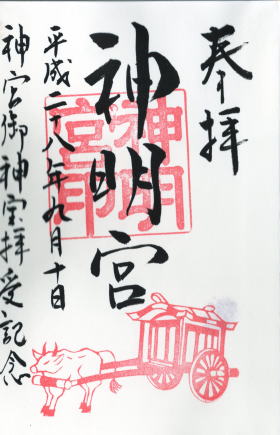 奉拝
神明宮
神明宮印
平成二十八年九月十日
神宮御神宝拝受記念